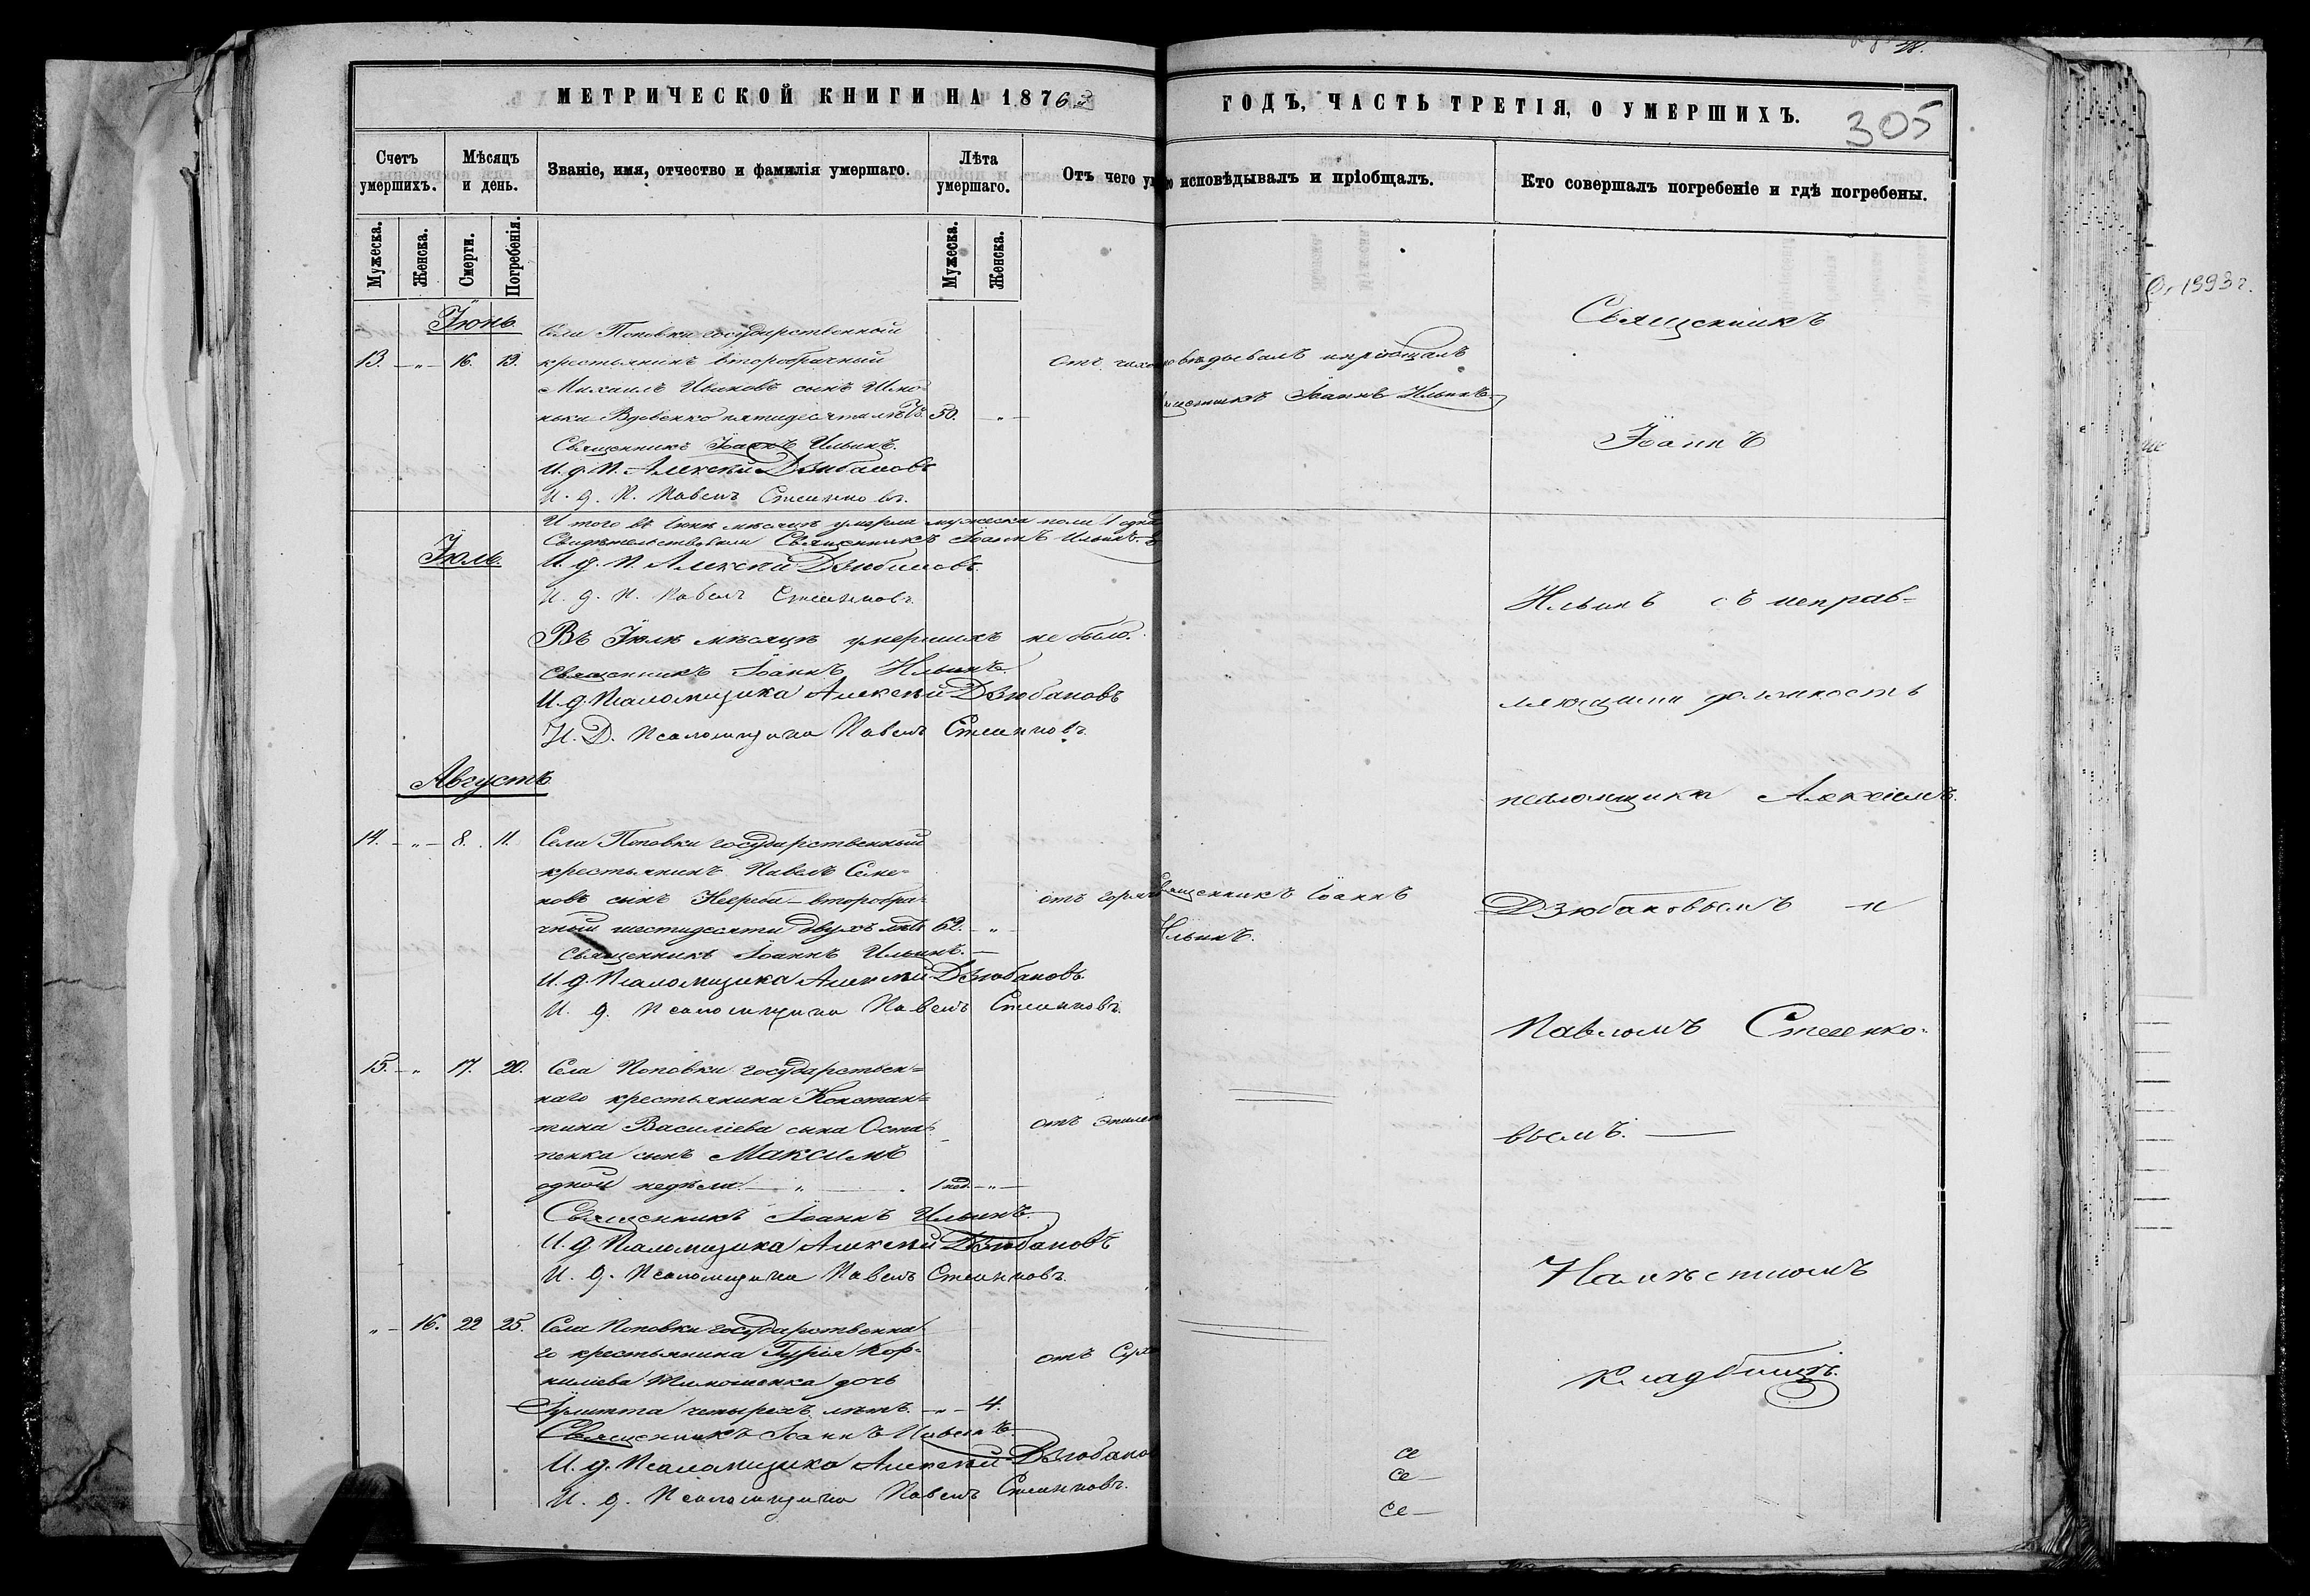 МЕТРИЧЕСКОЙ КНИГИ НА 1876
ГОДЪ, ЧАСТЬ ТРЕТІЯ, О УМЕРШИХЪ.
305
Счетъ умершихъ.
Мѣсяцъ и день.
Званіе, имя, отчество и фамилія умершаго.
Лѣта умершаго.
Отъ чего
исповѣдывалъ и пріобщалъ.
Кто совершалъ погребеніе и гдѣ погребены.
Мужеска.
Женска.
Смерти.
Погребенія.
Мужеска.
Женска.
Іюнь
Села Поповки государственный
13. — „ — 16. 19. крестьянинъ второбрачный
Михаилъ Ивановъ сынъ
Вдовенко пятидесяти лѣтъ. 50. „ —
Священникъ Іоаннъ Ильинъ.
И. д. П. Алексѣй Дзюбановъ
И. д. П. Павелъ Стеценковъ.
И того въ Іюнѣ мѣсяцѣ умерла мужеска пола 1 одна
Свидѣтельствовали Священникъ Іоаннъ Ильинъ
Іюль.
И. д. П. Алексѣй Дзюбановъ.
И. д. П. Павелъ Стеценковъ.
Въ Іюлѣ мѣсяцѣ умершихъ не было.
Священникъ Іоаннъ Ильинъ
И. д. Псаломщика Алексѣй Дзюбановъ
И. Д. Псаломщика Павелъ Стеценковъ.
Августъ
14. — „ — 8. 11. Села Поповки государственный
крестьянинъ Павелъ Семе=
новъ сынъ второбра=
чный шестидесяти двухъ лѣтъ 62. — „ —
отъ
Священникъ Іоаннъ Ильинъ. —
И. д. Псаломщика Алексѣй Дзюбановъ.
И. д. Псаломщика Павелъ Стеценковъ.
15. — „ 17. 20. Села Поповки государствен=
наго крестьянина Констан=
тина Василіева сына Оста=
пенка сынъ Максимъ
отъ
одной недѣли. — „ — 1 нед. — „ —
Священникъ Іоаннъ Ильинъ.
И. д. Псаломщика Алексѣй Дзюбановъ
И. д. Псаломщика Павелъ Стеценковъ.
„ — 16. 22 25. Села Поповки государственна=
го крестьянина Гурія Кор=
отъ
нилієва Тимошенка дочь
Іулитта четырехъ лѣтъ. — „ — 4.
Священникъ Іоаннъ Ильинъ
И. д. Псаломщика Алексѣй Дзюбано
И. д. Псаломщика Павелъ Стеценковъ.
вѣдывалъ и пріобщалъ
щенникъ Іоаннъ Ильинъ
щенникъ Іоаннъ
Ильинъ.
Священникъ
Іоаннъ
Ильинъ съ исправ=
ляющими должность
псаломщика Алексіемъ
Дзюбановымъ и
Павломъ Стеценко=
вымъ. —
На мѣстномъ
кладбищѣ.